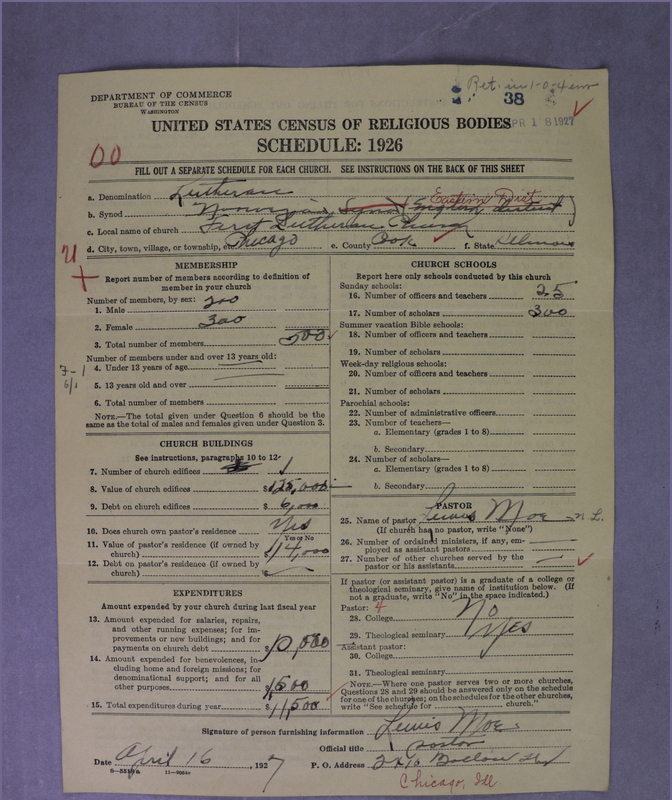 Ret. in 1-0-4
DEPARTMENT OF COMMERCE
BUREAU OF THE CENSUS
WASHINGTON
38
APR 18 1927
UNITED STATES CENSUS OF RELIGIOUS BODIES
SCHEDULE: 1926
00
FILL OUT A SEPARATE SCHEDULE FOR EACH CHURCH. SEE INSTRUCTIONS ON THE BACK OF THIS SHEET
a. Denomination Lutheran
Eastern Dist
b. Synod Norwegian Synod (English district)
c. Local name of church First Lutheran Church
d. City, town, village, or township, etc. Chicago e. County Cook f. State Illinois
U
MEMBERSHIP
Report number of members according to definition of member in your church
Number of members, by sex:
1. Male 200
2. Female 300
3. Total number of members 500
Number of members under and over 13 years old:
4. Under 13 years of age
5. 13 years old and over
6. Total number of members
NOTE.—The total given under Question 6 should be the same as the total of males and females given under Question 3.
CHURCH BUILDINGS
See instructions, paragraphs 10 to 12
7. Number of church edifices 1
8. Value of church edifices $125,000
9. Debt on church edifices $6,000
10. Does church own pastor's residence Yes
Yes or No
11. Value of pastor's residence (if owned by church) $14,000
12. Debt on pastor's residence (if owned by church) $
EXPENDITURES
Amount expended by your church during last fiscal year
13. Amount expended for salaries, repairs, and other running expenses; for improvements or new buildings; and for payments on church debt $10,000
14. Amount expended for benevolences, including home and foreign missions; for denominational support; and for all other purposes 1,500
15. Total expenditures during year $11,500
CHURCH SCHOOLS
Report here only schools conducted by this church
Sunday schools:
16. Number of officers and teachers 25
17. Number of scholars 300
Summer vacation Bible schools:
18. Number of officers and teachers
19. Number of scholars
Week-day religious schools:
20. Number of officers and teachers
21. Number of scholars
Parochial schools:
22. Number of administrative officers
23. Number of teachers—
a. Elementary (grades 1 to 8)
b. Secondary
24. Number of scholars—
a. Elementary (grades 1 to 8)
b. Secondary
PASTOR
25. Name of pastor Lewis Moe N. L.
(If church has no pastor, write "None")
26. Number of ordained ministers, if any, employed as assistant pastors
27. Number of other churches served by the pastor or his assistants
If pastor (or assistant pastor) is a graduate of a college or theological seminary, give name of institution below. (If not a graduate, write "No" in the space indicated.)
Pastor: 4
28. College No
29. Theological seminary Yes
Assistant pastor:
30. College
31. Theological seminary
NOTE.—Where one pastor serves two or more churches, Questions 28 and 29 should be answered only on the schedule for one of the churches; on the schedules for the other churches, write "See schedule for church."
Signature of person furnishing information Lewis Moe
Official title pastor
Date April 16, 1927 P. O. Address
Chicago, Ill.